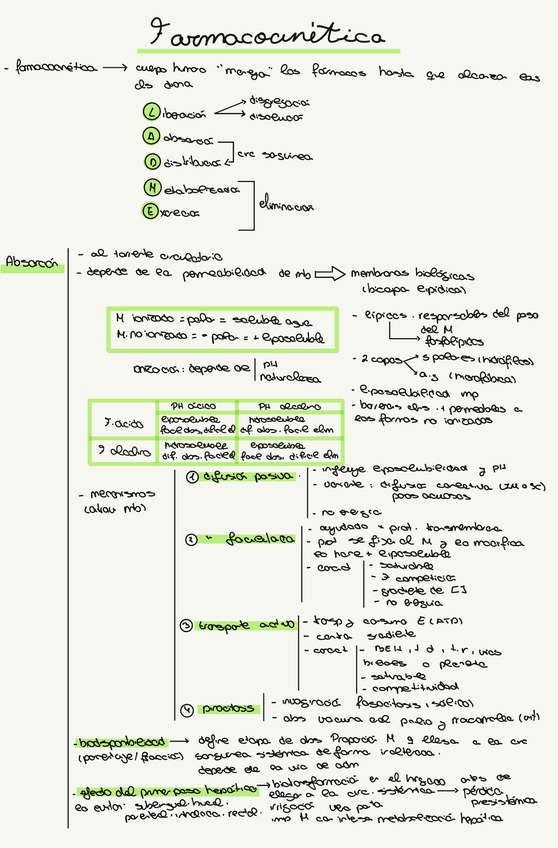 Farmacocinética
- farmacocinética → cuerpo humano "maneja" los fármacos hasta que alcanza
diana
Liberación → disgregación
disolución
Absorción
Distribución circ sanguínea
Metabolización
Excreción eliminación
Absorción
- al torrente circulatorio
- depende de la permeabilidad de mb ⇒ membranas biológicas
(bicapa lipídica)
M ionizado = polar = soluble agua
M. no ionizado = - polar = + liposoluble
- lípidos . responsables del paso
del M
→ fosfolípidos
ionización : depende de | PH
naturaleza
- 2 capas → s polares (hidrófilos)
a.g (hidrofóbica)
- liposolubilidad mp
- barreras abs . + permeables a
las formas no ionizadas
PH ácido PH alcalino
F. ácido liposoluble hidrosoluble
fácil abs. difícil el dif abs. fácil elim
F alcalino hidrosoluble liposoluble
dif. abs. fácil el fácil abs. difícil elim
- mecanismos
(atrav mb)
① difusión pasiva
- influye liposolubilidad y PH
- variante : difusión convectiva
poros acuosos
- no energía
② " facilitada
- ayudado x prot. transmembrana
- prot se fija al M y lo modifica
lo hace + liposoluble
- caract | - saturable
- ∃ competición
- gradiente de []
- no energía
③ transporte activo
- transp y consumo E (ATP)
- contra gradiente
- caract | - BEH, t d, t.r, vías
biliares o placenta
- saturable
- competitividad
④ pinocitosis
- invaginación fagocitosis (sólido)
- abs vacuna oral polio y macromolec (vit)
- biodisponibilidad → define etapa de abs Proporción M q llega a la circ
(porcentaje/fracción) sanguínea sistémica de forma inalterada.
depende de la vía de adm
- efecto del primer paso hepático → biotransformación en el hígado antes de
llegar a la circ. sistémica → pérdida
presistémica
lo evitan: sublingual, bucal.
parenteral, inhalatoria, rectal.
imp M con intensa metabolización hepática